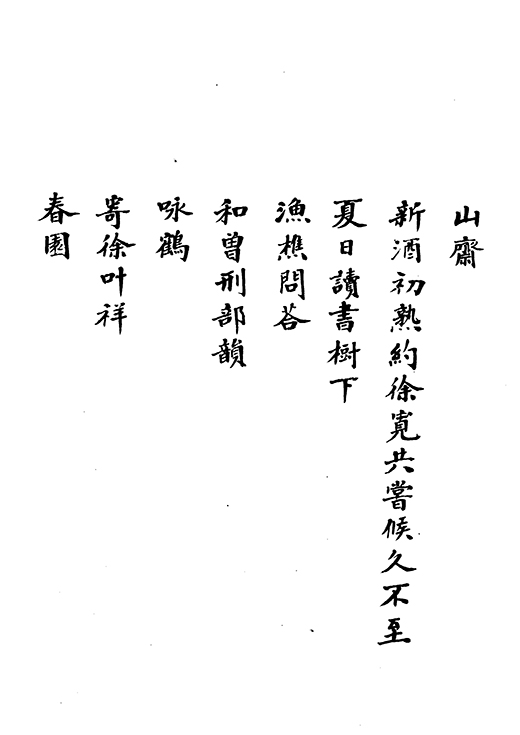 山齋
新酒初熟約徐寬共嘗候久不至
夏日讀書樹下
漁樵問荅
和曽刑部韻
咏鶴
寄徐叶祥
春園